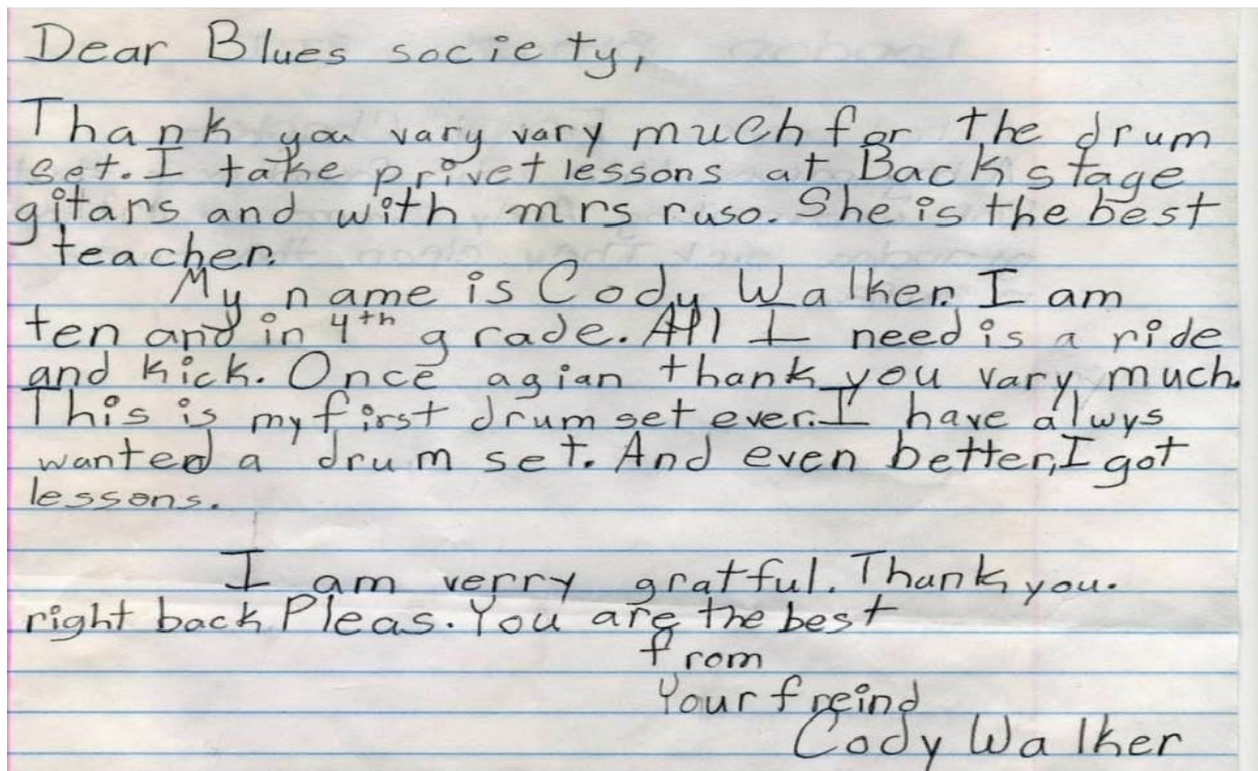 Dear Blues society,
Thank you vary vary much for the drum
set. I take privet lessons at Back stage
gitars and with mrs ruso. She is the best
teacher.
My name is Cody Walker. I am
ten and in 4th grade. All I need is a ride
and kick. Once agian thank you vary much.
This is my first drum set ever. I have alwys
wanted a drum set. And even better, I got
lessons.
I am verry gratful. Thank you.
right back Pleas. You are the best
from
Your freind
Cody Walker